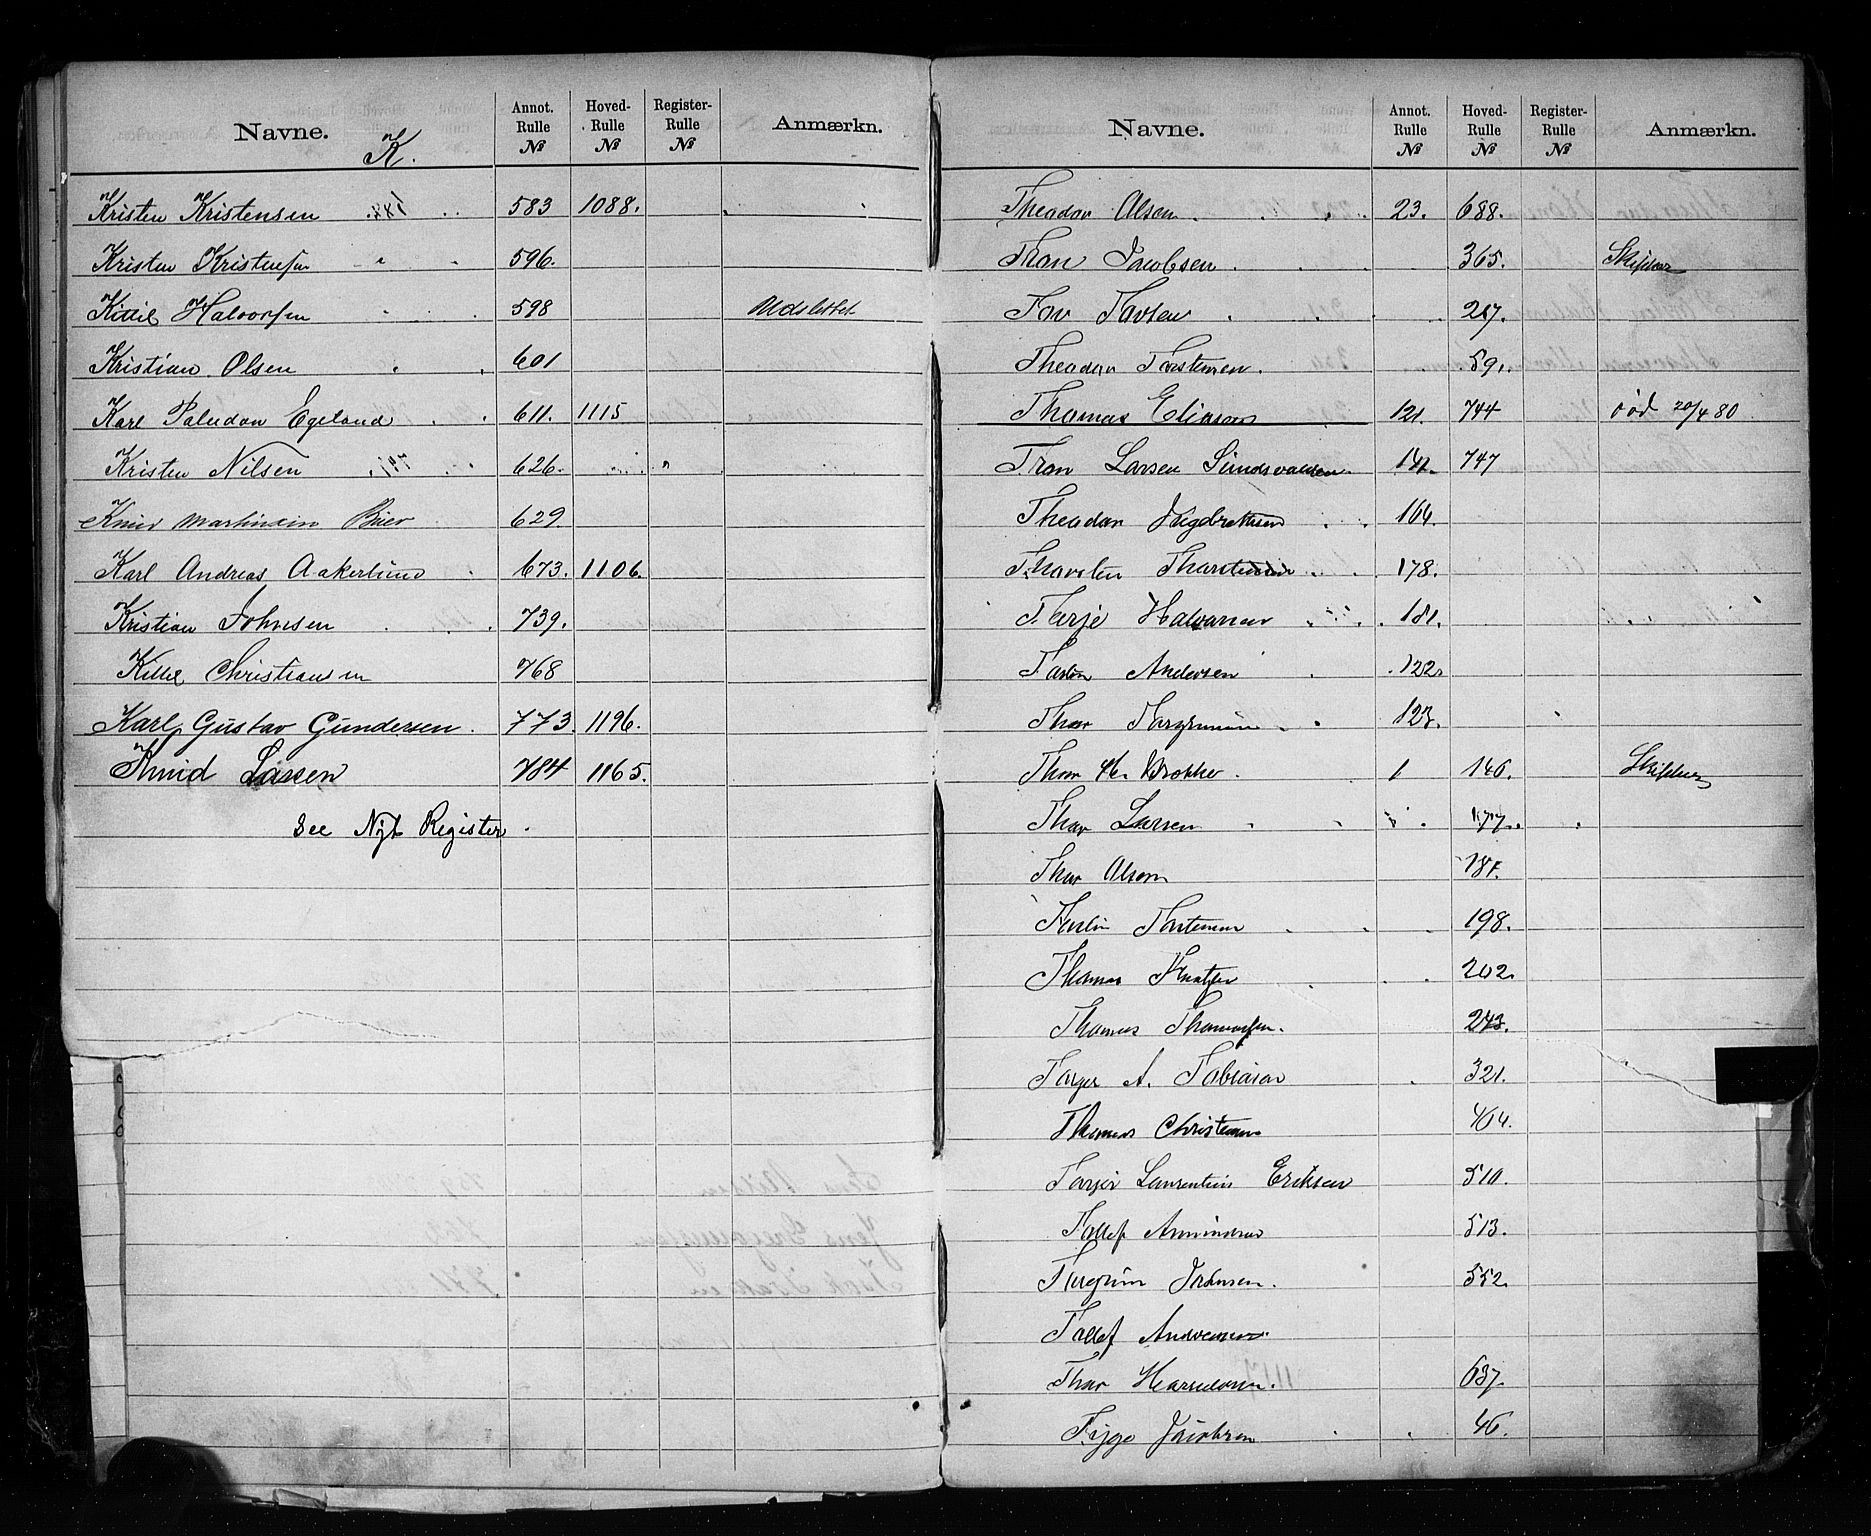 Navne. K. Annot. Rulle № Hoved-Rulle № Register-Rulle № Anmærkn.
Kristen Kristensen 583 1088.
Kristen Kristensen 596.
Kittil Halvorsen 598 Udslettet
Kristian Olsen 601
Karl Paludan Egeland 611. 1115
Kristen Nilsen 626.
Knud Martinsen 629
Karl Andreas Aakerlund 673. 1106.
Kristian Johnsen 739.
Kittil Christiansen 768
Karl Gustav Gundersen. 773. 1196.
Knud Larsen 784 1165.
See Nyt Register.
Navne. Annot. Rulle № Hoved-Rulle № Register-Rulle № Anmærkn.
Theodor Olsen 23. 688.
Thor Jacobsen 365. Skipper
Tov Tovsen 217.
Theodor Torstensen. 59.
Thomas Eliasen 121. 744 død 20/4 80
Tron Larsen 141. 747
Theodor Ingebretsen 164.
Thorsten Thorstensen 178.
Terje Halvorsen 181.
Andersen 122.
Thor 123.
Thor 1 146. Skipper
Thor Larsen 177.
Thor Olsen 181.
Torstensen 198.
Thomas 202.
Thomas Thomassen. 243.
Torger A. Tobiasen 321.
Thomas Christensen 404.
Torger Laurentius Eriksen 510.
Tollef 513.
Torgrim Johnsen. 552.
Tollef Andersen.
Thor 637.
Jacobsen 46.